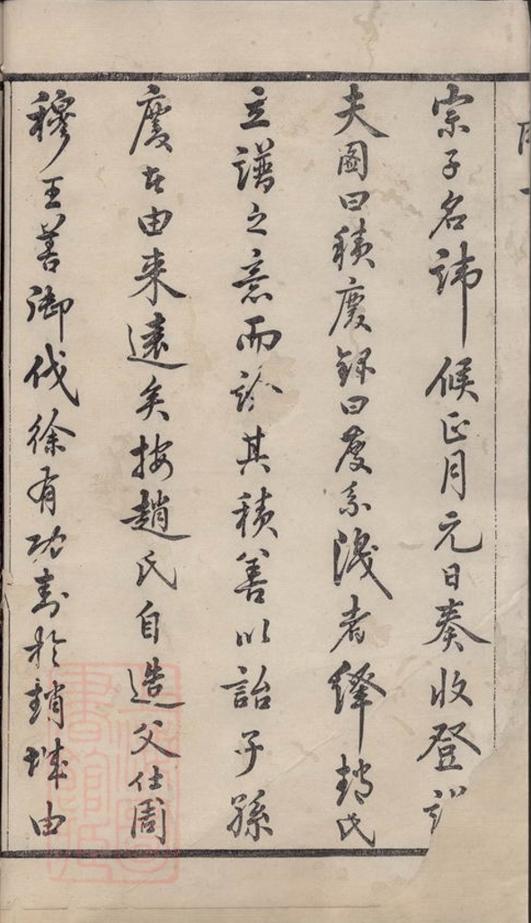 宗子名諱候正月元日奏收登記
夫圖曰積慶錄曰慶系淺者繹趙氏
立譜之意而診其積善以詒子孫
慶其由來遠矣按趙氏自造父仕周
穆王善御伐徐有功封於趙城由